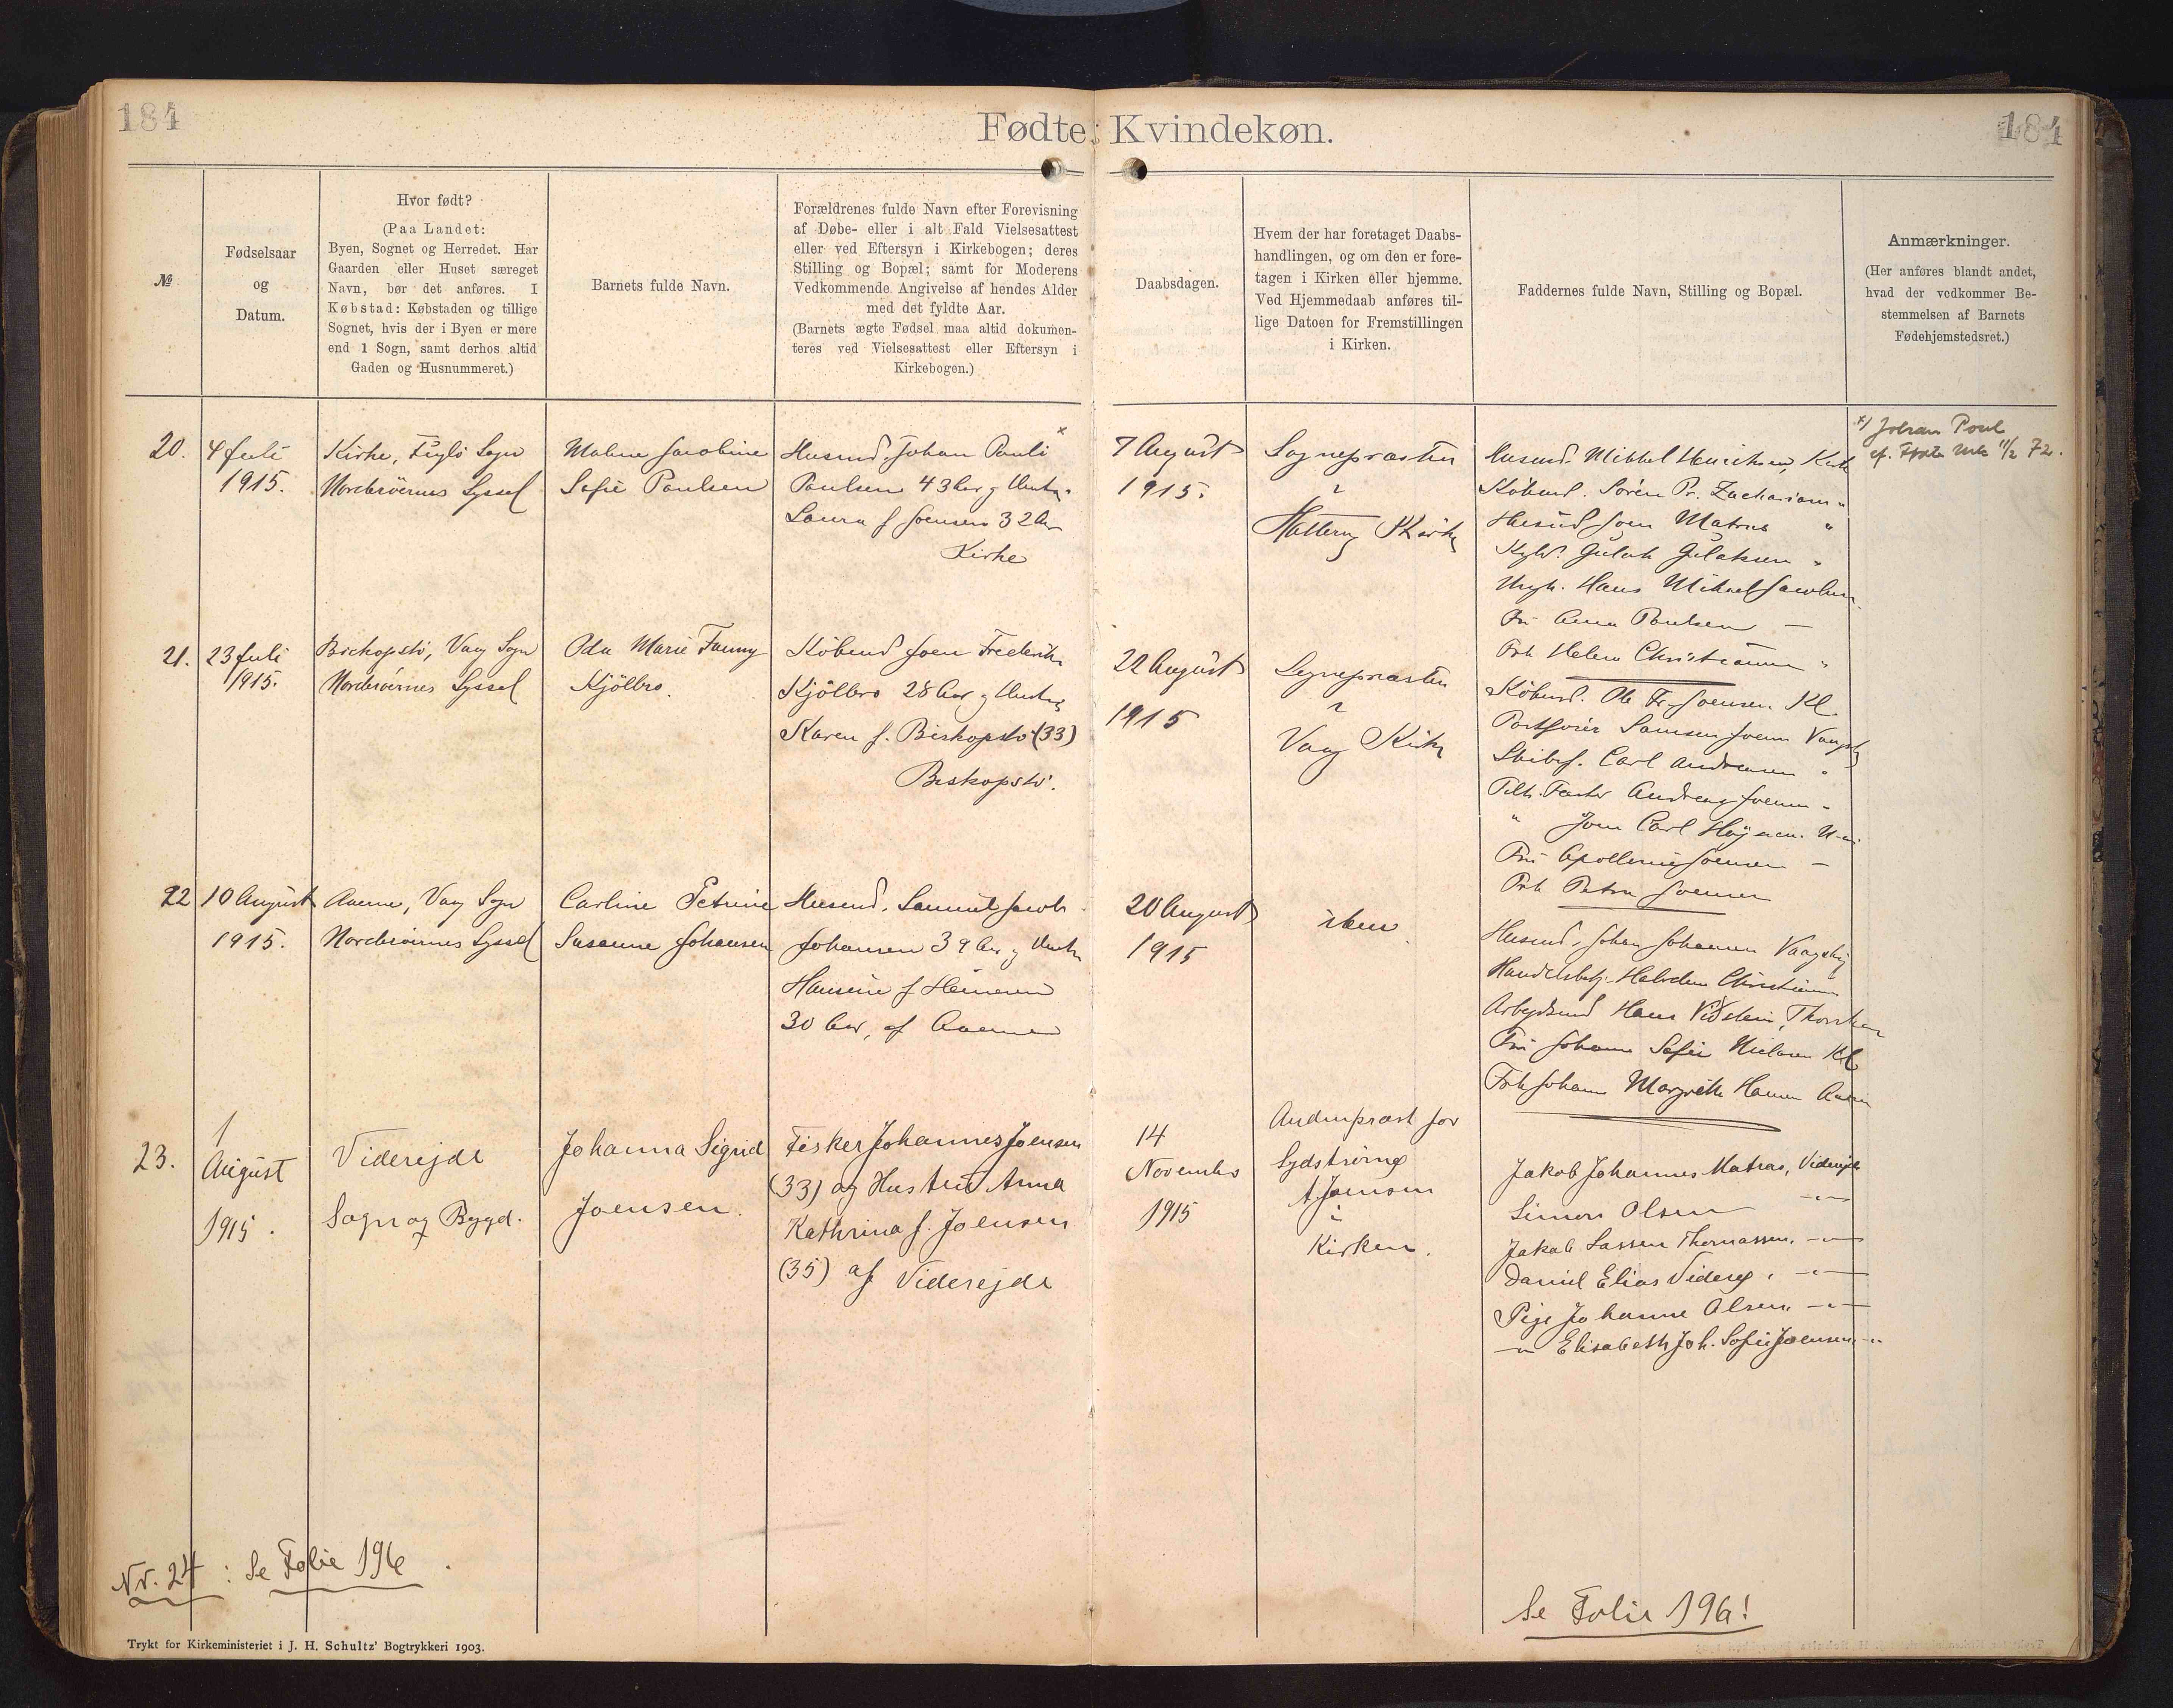 184
Fødte: Kvindekøn.
184
№
Fødselsaar
og
Datum.
Hvor født?
(Paa Landet:
Byen, Sognet og Herredet. Har
Gaarden eller Huset særeget
Navn, bør det anføres. I
Købstad: Købstaden og tillige
Sognet, hvis der i Byen er mere
end 1 Sogn, samt derhos altid
Gaden og Husnummeret.)
Barnets fulde Navn.
Forældrenes fulde Navn efter Forevisning
af Døbe- eller i alt Fald Vielsesattest
eller ved Eftersyn i Kirkebogen; deres
Stilling og Bopæl; samt for Moderens
Vedkommende Angivelse af hendes Alder
med det fyldte Aar.
(Barnets ægte Fødsel maa altid dokumen-
teres ved Vielsesattest eller Eftersyn i
Kirkebogen.)
Daabsdagen.
Hvem der har foretaget Daabs-
handlingen, og om den er fore-
tagen i Kirken eller hjemme.
Ved Hjemmedaab anføres til-
lige Datoen for Fremstillingen
i Kirken.
Faddernes fulde Navn, Stilling og Bopæl.
Anmærkninger.
(Her anføres blandt andet,
hvad der vedkommer Be-
stemmelsen af Barnets
Fødehjemstedsret.)
20.
4 Juli
1915.
Kirke, Fuglö Sogn
Norderöernes Syssel
Malene Jacobine
Sofie Poulsen
Husmd. Johan Pauli x
Poulsen 43 Aar og Hustru
Laura f Joensen 32 Aar
Kirke
7 August
1915.
Sognepræsten
i
Hattervig Kirke
Husmd. Mikkel Henriksen, Kirke
Købmd. Sören Pr. Zachariasen "
Husmd Joen Matras "
Gulak Gulaksen "
Ungk. Hans Mikael Jacobsen
Fru Anna Poulsen —
Frk Helene Christiansen "
x) Johan Poul
11/2 72.
21.
23 Juli
1915.
Biskopstö, Vaag Sogn
Norderöernes Syssel
Oda Marie Fanny
Kjölbro.
Købmd Joen Frederik
Kjölbro 28 Aar og Hustru
Karen f. Biskopstö (33)
Biskopstö.
22 August
1915
Sognepræsten
i
Vaag Kirke
Købmd. Ole Fr. Joensen Kl.
Postfører Samson Joensen Vaag
Skibsf. Carl Andreasen "
Andreas Joensen "
" Joen Carl Höjgaard
Fru Apollonia Joensen —
Frk Petra Joensen
22
10 August
1915.
Aaerne, Vaag Sogn
Norderöernes Syssel
Carline Petrine
Susanne Johansen
Husmd. Samuel Jacob
Johansen 39 Aar og Hustru
Hansine f Heinesen
30 Aar, af Aaerne
20 August
1915
idem
Husmd, Johan Johansen
Handelsbetj. Halvdan Christiansen
Arbejdsmd Hans Vidstein, Thorshavn
Fru Johanne Sofie Nielsen Kl
Frk Johanne Margrethe Hansen
23.
1
August
1915.
Viderejde
Sogn og Bygd.
Johanna Sigrid
Joensen.
Fisker Johannes Joensen
(33) og Hustru Anna
Kathrina f. Joensen
(35) af Viderejde
14
November
1915
Andenpræst for
Sydstrømø
A Joensen
i
Kirken.
Jakob Johannes Matras, Viderejde
Simon Olsen —"—
Jakob Sassen Thomassen. —"—
Daniel Elias Viderø. —"—
Pige Johanne Olsen —"—
—"— Elisabeth Joh. Sofie Joensen —"—
Nr. 24 : Se Folie 196.
Se Folie 196!
Trykt for Kirkeministeriet i J. H. Schultz' Bogtrykkeri 1903.